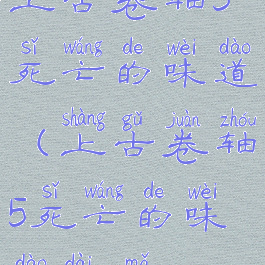 上古卷轴5
sǐ wáng de wèi dào
死亡的味道
shàng gǔ juàn zhóu
(上古卷轴
sǐ wáng de wèi
5死亡的味
dào dài mǎ